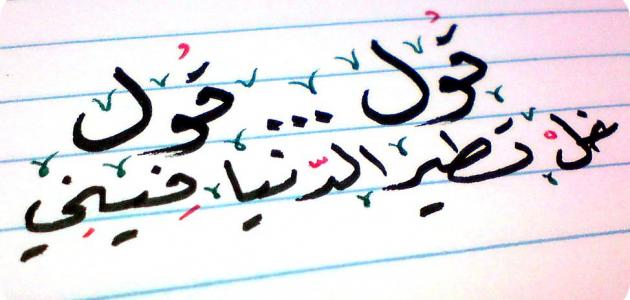 قُول ... قُول
خلْ تطير الدّنيا فِينِي